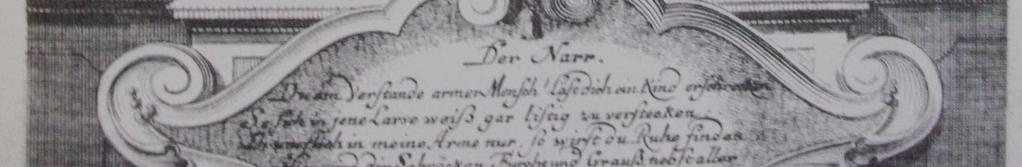 Der Narr.
Du am Verstande armer Mensch! Läst dich ein Kind erschrecken
Das sich in jene Larve weiß gar listig zu verstecken
dich in meine Arme nur, so wirst du Ruhe finden
den Schrücken, Furcht und Grauß nebst aller